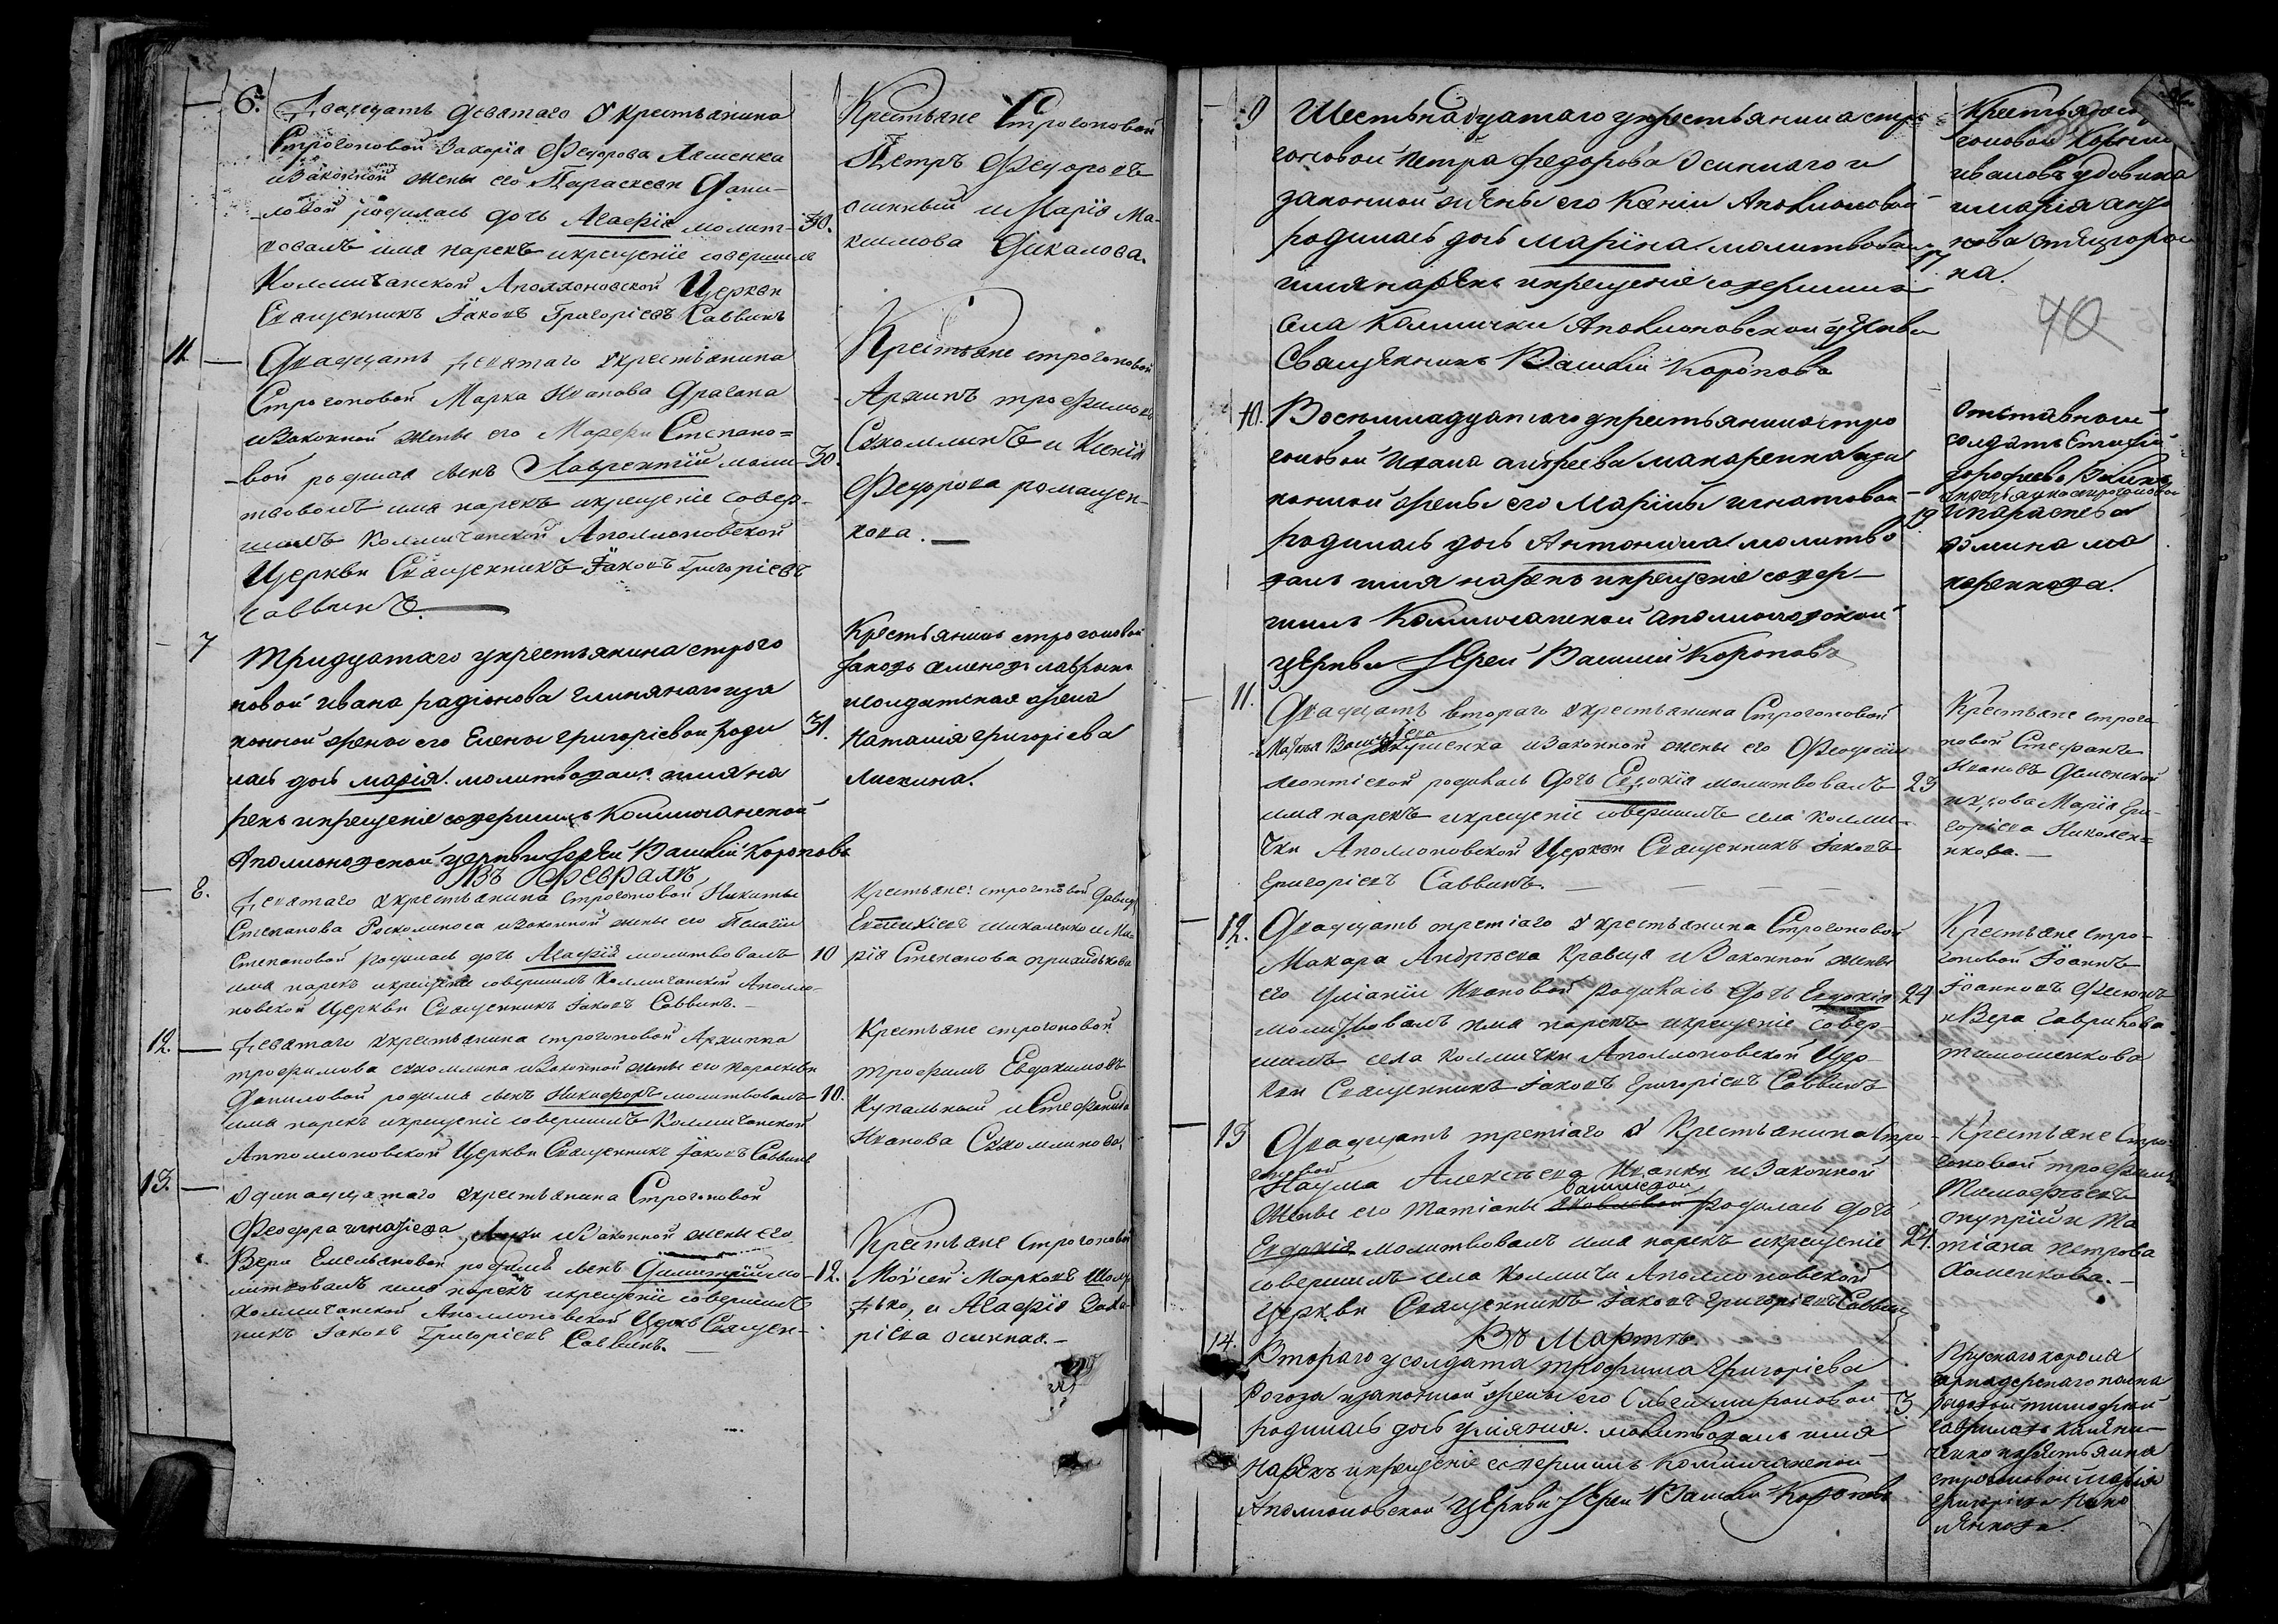 6.
Двадцать девятаго у крестьянина
Строгоновой Захарія Федорова Ляшенка
и законной жены его Параскевы Дани-
ловой родилась дочь Агафія молит-
вовалъ имя нарекъ и крещеніе совершилъ
Колмичанской Аполлоновской Церкви
Священникъ Іаковъ Григоріевъ Саввинъ
30.
Крестьяне Строгоновой
Петръ Федоровъ
осинный и Марія Ма-
ксимова Дикалова.
11.
Двадцать девятаго у крестьянина
Строгоновой Марка Иванова Драгана
и законной жены его Марфы Степано=
вой родился сынъ Лаврентій моли-
твовалъ имя нарекъ и крещеніе совер-
шилъ Колмичанской Аполлоновской
Церкви Священникъ Іаковъ Григоріевъ
Саввинъ.
30.
Крестьяне строгоновой
Архипъ трофимовъ
Скомлинъ и Ксенія
Федорова ромащен-
кова.
7
Тридцатаго у крестьянина строго
новой ивана радіонова глинянаго и за
конной жены его Елены григоріевой роди
лась дочь марія. молитвовалъ имя на
рекъ и крещеніе совершилъ Колмичанской
Аполлоновской церкви Іерей Василій Короповъ
31.
Крестьянинъ строгоновой
Іаковъ
и солдатская жена
Наталія григоріева
Лискина.
Въ Февралѣ
8.
Девятаго у крестьянина строгоновой Никиты
Степанова Роскомноса и законной жены его Пелагіи
Степановой родилась дочь Агафія молитвовалъ
имя нарекъ и крещеніе совершилъ Колмичанской Аполло-
новской Церкви Священникъ Іаковъ Саввинъ.
10
Крестьяне: строгоновой Давидъ
Езекіевъ михаленко и Ма-
рія Степанова
12.
Девятаго у крестьянина строгоновой Архиппа
трофимова скомлина и законной жены его параскевы
Даниловой родился сынъ Никифоръ молитвовалъ
имя нарекъ и крещеніе совершилъ Колмичанской
Апполлоновской Церкви Священникъ Іаковъ Саввинъ
10.
Крестьяне строгоновой
трофимъ Евдокимовъ
Купальный и Стефанида
Иванова Скомлинова,
13.
Одинадцатаго у крестьянина Строгоновой
Феодора игнатіева и законной жены его
Веры Емельяновой родился сынъ Димитрій мо-
литвовалъ имя нарекъ и крещеніе совершилъ
Колмичанской Аполлоновской Церкв Священ-
никъ Іаковъ Григоріевъ Саввинъ.
12.
Крестьяне Строгоновой
Моѵсей Марковъ
и Агафія Заха-
ріева осинная.
9
Шестьнадцатаго у крестьянина стро
гоновой петра федорова Осиннаго и
законной жены его Ксеніи Аполлоновой
родилась дочь Марина молитвовалъ
имя нарекъ и крещеніе совершилъ
села Колмички Аполлоновской церкви
Священникъ Василій Короповъ
17
ивановъ удовика
и марія
на.
40
10.
Восемнадцатаго у крестьянина стро
гоновой Ивана андреева макаренка и за
конной жены его Маріи игнатовой
родилась дочь Антонина молитво
валъ имя нарекъ и крещеніе совер-
шилъ Колмичанской Аполлоновской
церкви Іерей Василій Короповъ
19
Отставной
солдатъ
дорофеевъ
и крестьянка строгоновой
и параскева
фомина ма
каренкова.
11.
Двадцать втораго у крестьянина Строгоновой
Матвея Василіева и законной жены его Феодосіи
леонтіевой родилась дочь Евдокія молитвовалъ
имя нарекъ и крещеніе совершилъ села колми-
чки Аполлоновской Церкви Священникъ Іаковъ
Григоріевъ Саввинъ.
23
Крестьяне строго
новой Стефанъ
Ивановъ Деменской
и вдова Марія Гри-
горіева Николен=
кова.
12.
Двадцать третіаго у крестьянина Строгоновой
Макара Андрѣева Кравца и законной жены
его Уліаніи Ивановой родилась дочь Евдокія
молитвовалъ имя нарекъ и крещеніе совер-
шилъ села колмички Аполлоновской Цер-
кви Священникъ Іаковъ Григоріевъ Саввинъ
24
Крестьяне Стро-
гоновой Іоаннъ
Іоанновъ
и Вера Гаврилова
тимошенкова
13
Двадцать третіаго у Крестьянина Стро-
гоновой
Наума Алексѣева Иванки и законной
Василіевой
жены его Татіаны родилась дочь
Евдокія молитвовалъ имя нарекъ и крещеніе
совершилъ села колмичи Аполлоновской
Церкви Священникъ Іаковъ Григоріевъ Саввинъ
24.
Крестьяне Стро-
гоновой трофимъ
Тимофеевъ
и Та
тіана Петрова
Хоменкова.
Въ Мартѣ.
14.
Втораго у солдата трофима Григоріева
Рогоза и законной жены его Ольги мироновой
родилась дочь Уліянія. молитвовалъ имя
нарекъ и крещеніе совершилъ Колмичанской
Аполлоновской церкви Іерей Василій Короповъ
3
Прускаго короля
гренадерскаго полка
рядовой тимофей
гавриловъ
и крестьянка
строгоновой марія
григоріева